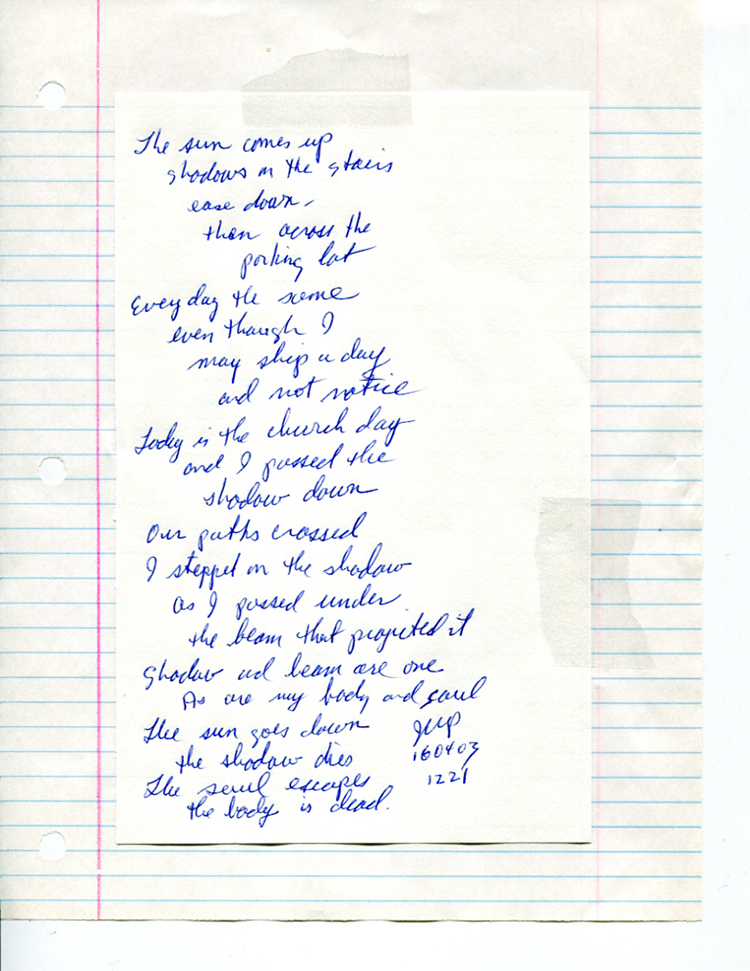 The sun comes up
shadows on the stairs
ease down,
then across the
parking lot
Everyday the same
even though I
may skip a day
and not notice
Today is the church day
and I passed the
shadow down
Our paths crossed
I stepped on the shadow
as I passed under
the beam that projected it
Shadow and beam are one
As are my body and soul
The sun goes down
the shadow dies
The soul escapes
the body is dead.
160403
1221